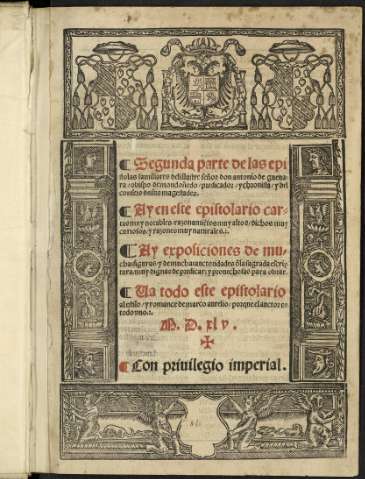 ¶ Segunda parte de las epi
stolas familiares del illustre señor don antonio de gueua
ra: obispo de mondoñedo: predicador: y chronista: y del
consejo de su magestad.
¶ Ay en este epistolario car-
tas muy notables: razonamiẽtos muy altos: dichos muy
curiosos: y razones muy naturales.
¶ Ay exposiciones de mu-
chas figuras: y de muchas auctoridades d̃la sagrada escri-
tura: muy dignas de predicar: y prouechosas para obrar.
¶ Va todo este epistolario
al estilo: y romance de marco aurelio: porque el auctor es
todo vno.
M. D. xlv.
¶ Con priuilegio imperial.